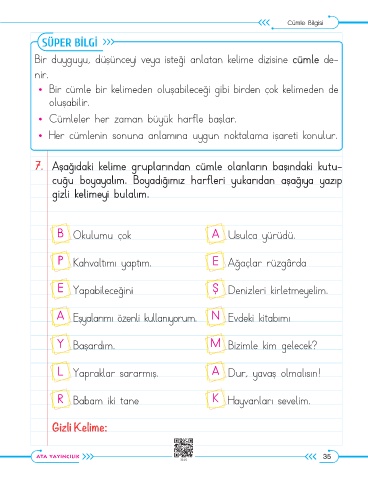 Cümle Bilgisi
SÜPER BİLGİ
Bir duyguyu, düşünceyi veya isteği anlatan kelime dizisine cümle de-
nir.
• Bir cümle bir kelimeden oluşabileceği gibi birden çok kelimeden de
oluşabilir.
• Cümleler her zaman büyük harfle başlar.
• Her cümlenin sonuna anlamına uygun noktalama işareti konulur.
7. Aşağıdaki kelime gruplarından cümle olanların başındaki kutu-
cuğu boyayalım. Boyadığımız harfleri yukarıdan aşağıya yazıp
gizli kelimeyi bulalım.
B Okulumu çok
P Kahvaltımı yaptım.
E Yapabileceğini
A Eşyalarımı özenli kullanıyorum.
Y Başardım.
L Yapraklar sararmış.
R Babam iki tane
A Usulca yürüdü.
E Ağaçlar rüzgârda
Ş Denizleri kirletmeyelim.
N Evdeki kitabımı
M Bizimle kim gelecek?
A Dur, yavaş olmalısın!
K Hayvanları sevelim.
Gizli Kelime:
ATA YAYINCILIK
35